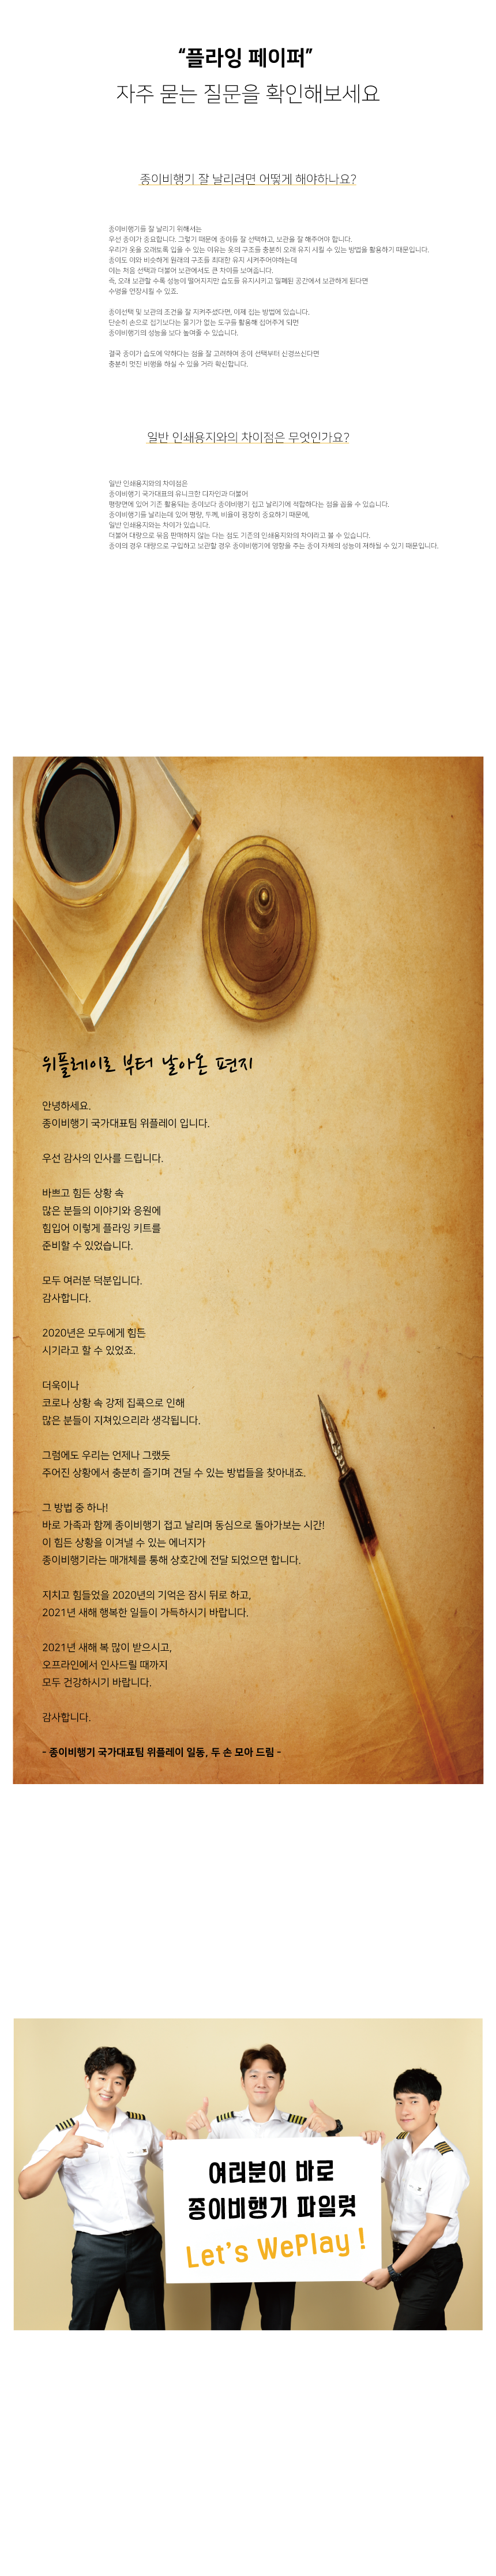 “플라잉 페이퍼”
자주 묻는 질문을 확인해보세요
종이비행기 잘 날리려면 어떻게 해야하나요?
종이비행기를 잘 날리기 위해서는
우선 종이가 중요합니다. 그렇기 때문에 종이를 잘 선택하고, 보관을 잘 해주어야 합니다.
우리가 옷을 오래토록 입을 수 있는 이유는 옷의 구조를 충분히 오래 유지 시킬 수 있는 방법을 활용하기 때문입니다.
종이도 이와 비슷하게 원래의 구조를 최대한 유지 시켜주어야하는데
이는 처음 선택과 더불어 보관에서도 큰 차이를 보여줍니다.
즉, 오래 보관할 수록 성능이 떨어지지만 습도를 유지시키고 밀폐된 공간에서 보관하게 된다면
수명을 연장시킬 수 있죠.
종이선택 및 보관의 조건을 잘 지켜주셨다면, 이제 접는 방법에 있습니다.
단순히 손으로 접기보다는 물기가 없는 도구들을 활용해 접어주게 되면
종이비행기의 성능을 보다 높여줄 수 있습니다.
결국 종이가 습도에 약하다는 점을 잘 고려하여 종이 선택부터 신경쓰신다면
충분히 멋진 비행을 하실 수 있을 거라 확신합니다.
일반 인쇄용지와의 차이점은 무엇인가요?
일반 인쇄용지와의 차이점은
종이비행기 국가대표의 유니크한 디자인과 더불어
평량면에 있어 기존 활용되는 종이보다 종이비행기 접고 날리기에 적합하다는 점을 꼽을 수 있습니다.
종이비행기를 날리는데 있어 평량, 두께, 비율이 굉장히 중요하기 때문에,
일반 인쇄용지와는 차이가 있습니다.
더불어 대량으로 묶음 판매하지 않는 다는 점도 기존의 인쇄용지와의 차이라고 볼 수 있습니다.
종이의 경우 대량으로 구입하고 보관할 경우 종이비행기에 영향을 주는 종이 자체의 성능이 저하될 수 있기 때문입니다.
위플레이로 부터 날아온 편지
안녕하세요.
종이비행기 국가대표팀 위플레이 입니다.
우선 감사의 인사를 드립니다.
바쁘고 힘든 상황 속
많은 분들의 이야기와 응원에
힘입어 이렇게 플라잉 키트를
준비할 수 있었습니다.
모두 여러분 덕분입니다.
감사합니다.
2020년은 모두에게 힘든
시기라고 할 수 있었죠.
더욱이나
코로나 상황 속 강제 집콕으로 인해
많은 분들이 지쳐있으리라 생각됩니다.
그럼에도 우리는 언제나 그랬듯
주어진 상황에서 충분히 즐기며 견딜 수 있는 방법들을 찾아내죠.
그 방법 중 하나!
바로 가족과 함께 종이비행기 접고 날리며 동심으로 돌아가보는 시간!
이 힘든 상황을 이겨낼 수 있는 에너지가
종이비행기라는 매개체를 통해 상호간에 전달 되었으면 합니다.
지치고 힘들었을 2020년의 기억은 잠시 뒤로 하고,
2021년 새해 행복한 일들이 가득하시기 바랍니다.
2021년 새해 복 많이 받으시고,
오프라인에서 인사드릴 때까지
모두 건강하시기 바랍니다.
감사합니다.
- 종이비행기 국가대표팀 위플레이 일동, 두 손 모아 드림 -
여러분이 바로
종이비행기 파일럿
Let's WePlay !